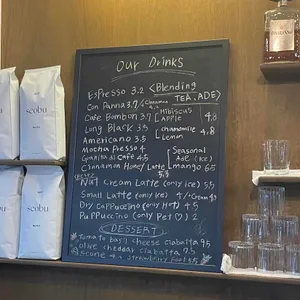 Our Drinks
Espresso 3.2
Con Panna 3.7
Cafe Bombon 3.7
Long Black 3.5
Americano 3.5
Mocha Presso 4
Cafe 4.5
Cinnamon Honey Latte 5.5
Nut Cream Latte (only ice) 5.5
Small Latte (only ice) 4
Dry Cappuccino (only Hot) 4.5
Puppuccino (only Pet ♡) 2
<Blending
TEA, ADE>
Hibiscus
Apple 4.8
chamomile
Lemon 4.8
Seasonal
Ade (ice)
mango 6.5
DESSERT
Tomato basil cheese ciabatta 9.5
olive cheddar ciabatta 7.5
Scone
scobu
scobu